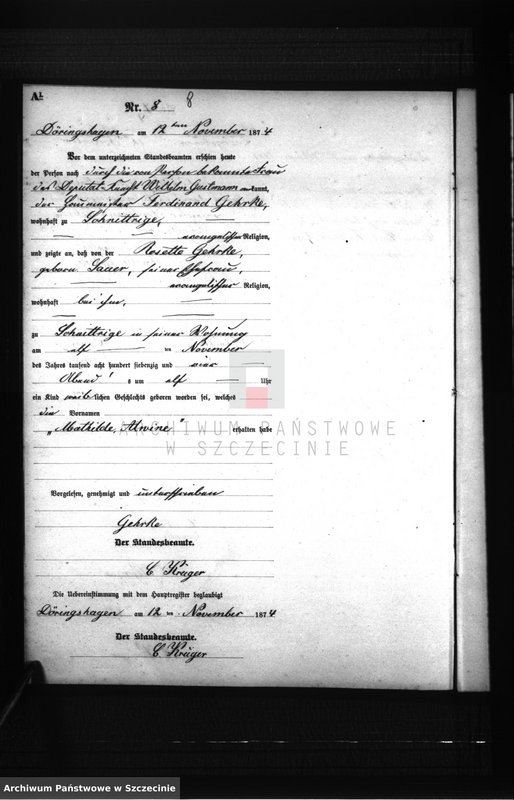 A1.
Nr. 8
8
Döringshagen am 12 ten November 1874
Vor dem unterzeichneten Standesbeamten erschien heute
der Person nach durch die von Person bekannte Frau
des Deputat-Knecht Wilhelm kannt,
der Ferdinand Gehrke,
wohnhaft zu Schnittrige,
evangelischer Religion,
und zeigte an, daß von der Rosette Gehrke,
geborn Sauer, seiner Ehefrau,
evangelischer Religion,
wohnhaft bei ihm,
zu Schnittrige in seiner Wohnung
am elf ten November
des Jahres tausend acht hundert siebenzig und vier
Abend's um elf Uhr
ein Kind weiblichen Geschlechts geboren worden sei, welches
die Vornamen
„Mathilde, Alwine" erhalten habe
Vorgelesen, genehmigt und unterschrieben
Gehrke
Der Standesbeamte.
C Krüger
Die Uebereinstimmung mit dem Hauptregister beglaubigt
Döringshagen am 12 ten November 1874
Der Standesbeamte.
C Krüger
ARCHIWUM PAŃSTWOWE
W SZCZECINIE
Archiwum Państwowe w Szczecinie